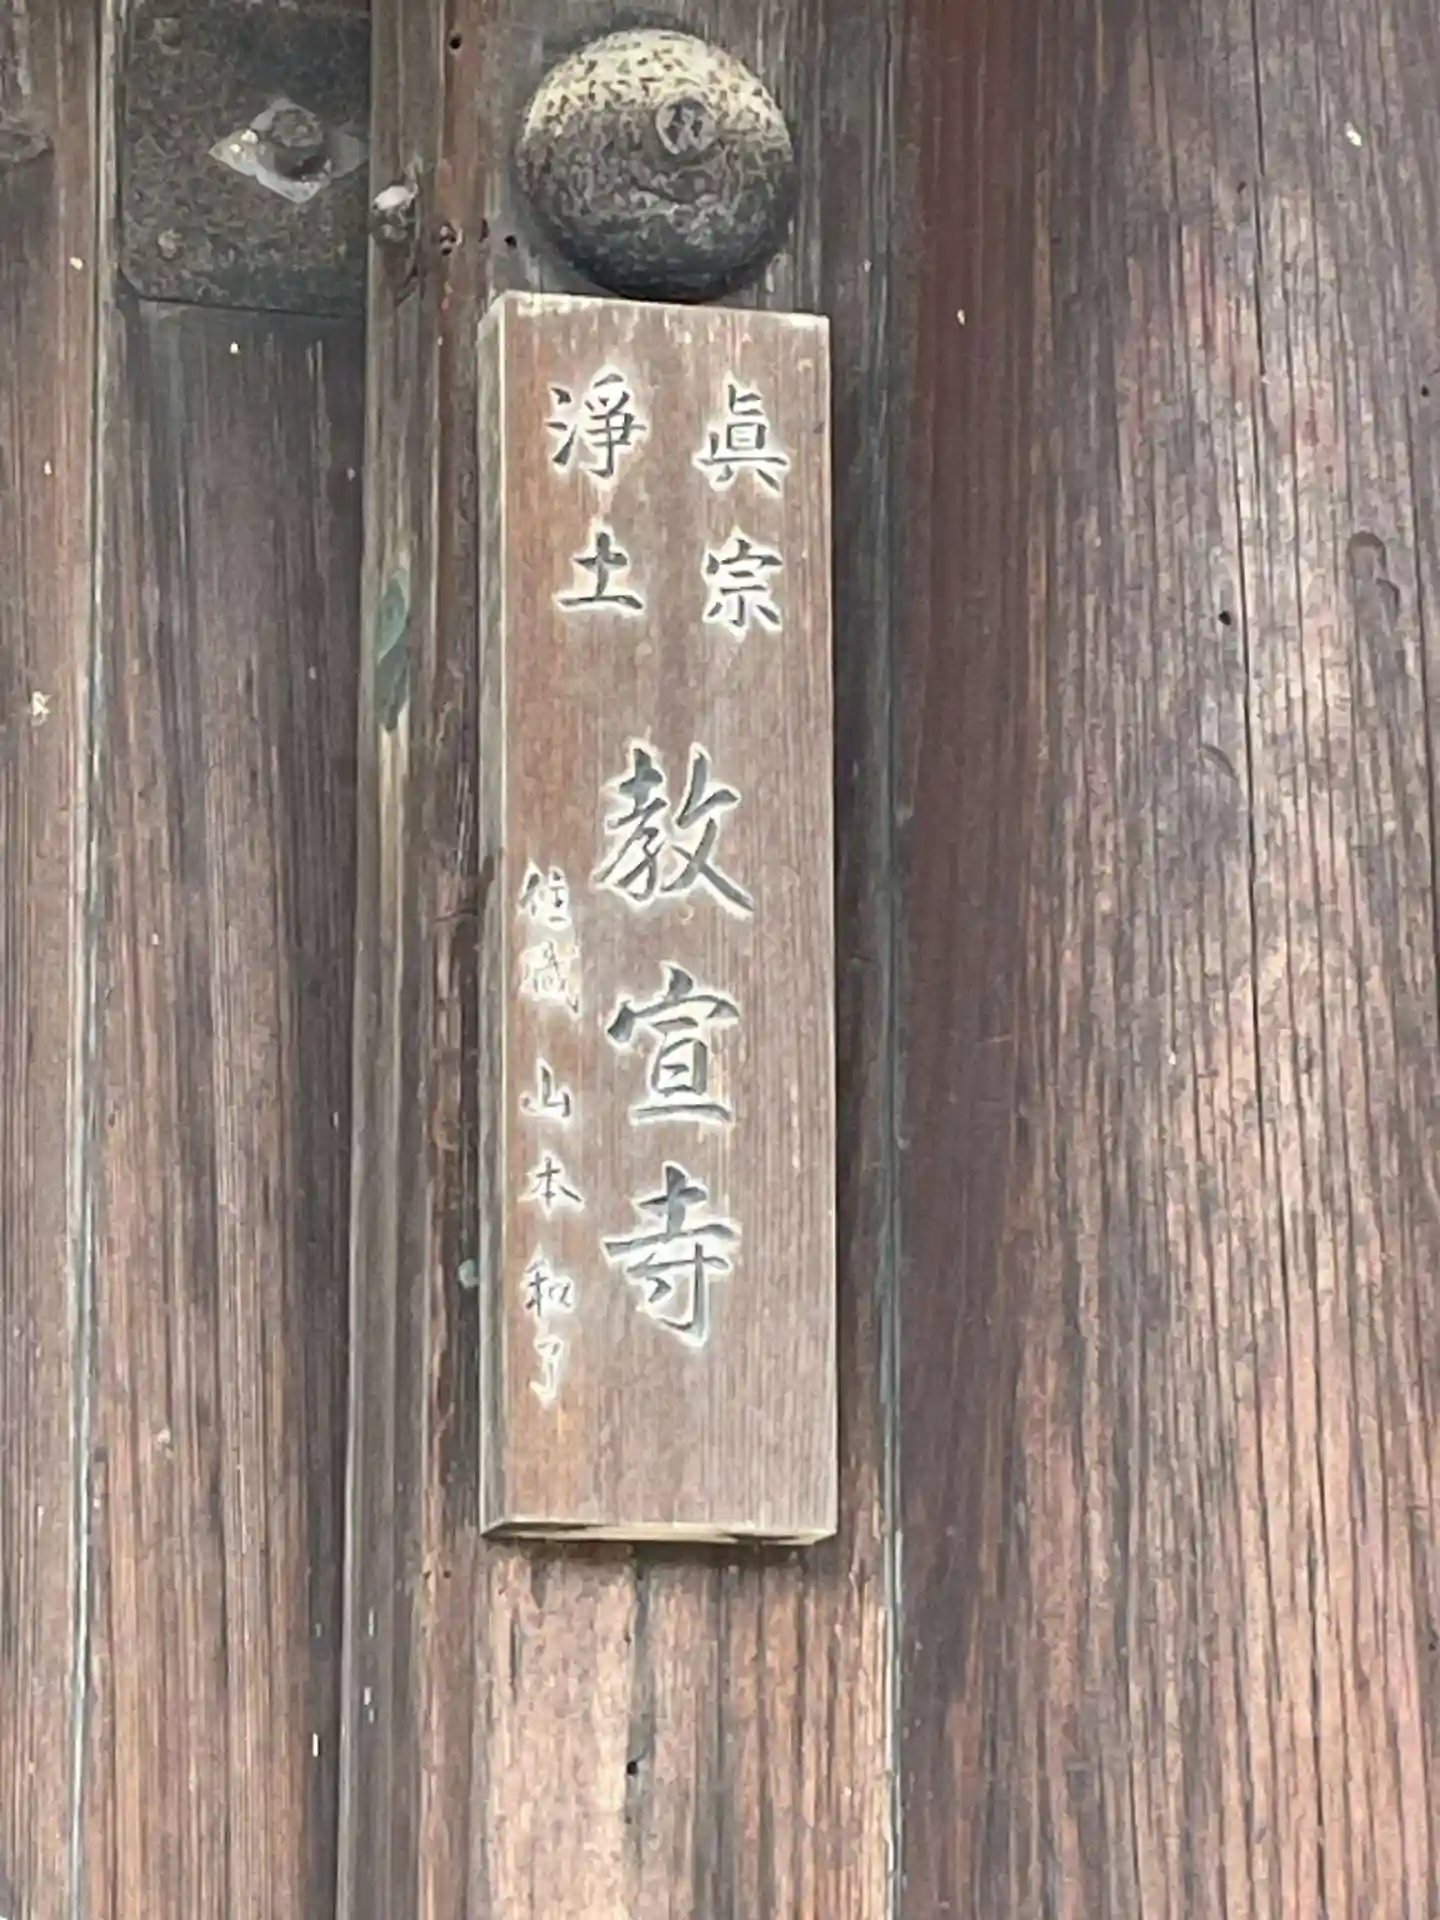 眞宗
淨土
教宣寺
住職 山本和了